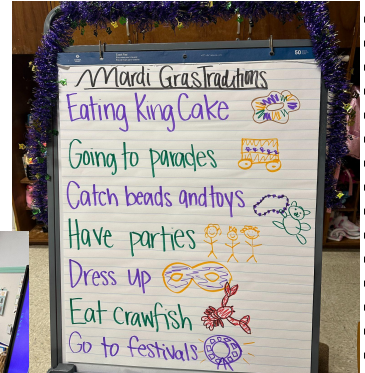 50
Mardi Gras Traditions
Eating King Cake
Going to parades
Catch beads and toys
Have parties
Dress up
Eat crawfish
Go to festivals